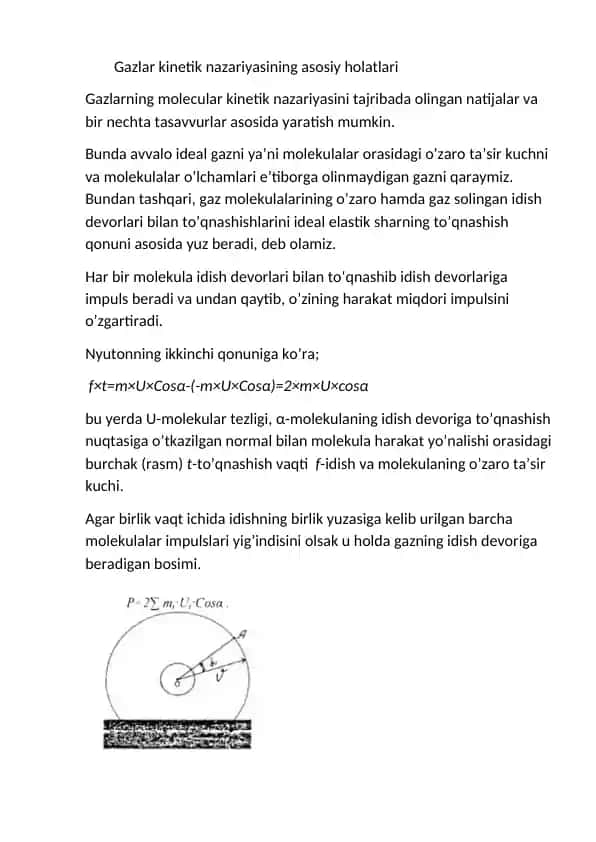 Gazlar kinetik nazariyasining asosiy holatlari
Gazlarning molecular kinetik nazariyasini tajribada olingan natijalar va
bir nechta tasavvurlar asosida yaratish mumkin.
Bunda avvalo ideal gazni ya’ni molekulalar orasidagi o’zaro ta’sir kuchni
va molekulalar o’lchamlari e’tiborga olinmaydigan gazni qaraymiz.
Bundan tashqari, gaz molekulalarining o’zaro hamda gaz solingan idish
devorlari bilan to’qnashishlarini ideal elastik sharning to’qnashish
qonuni asosida yuz beradi, deb olamiz.
Har bir molekula idish devorlari bilan to’qnashib idish devorlariga
impuls beradi va undan qaytib, o’zining harakat miqdori impulsini
o’zgartiradi.
Nyutonning ikkinchi qonuniga ko’ra;
f×t=m×U×Cosα-(-m×U×Cosα)=2×m×U×cosα
bu yerda U-molekular tezligi, α-molekulaning idish devoriga to’qnashish
nuqtasiga o’tkazilgan normal bilan molekula harakat yo’nalishi orasidagi
burchak (rasm) t-to’qnashish vaqti f-idish va molekulaning o’zaro ta’sir
kuchi.
Agar birlik vaqt ichida idishning birlik yuzasiga kelib urilgan barcha
molekulalar impulslari yig’indisini olsak u holda gazning idish devoriga
beradigan bosimi.
P=2∑ mᵢ·Uᵢ·Cosα .
A